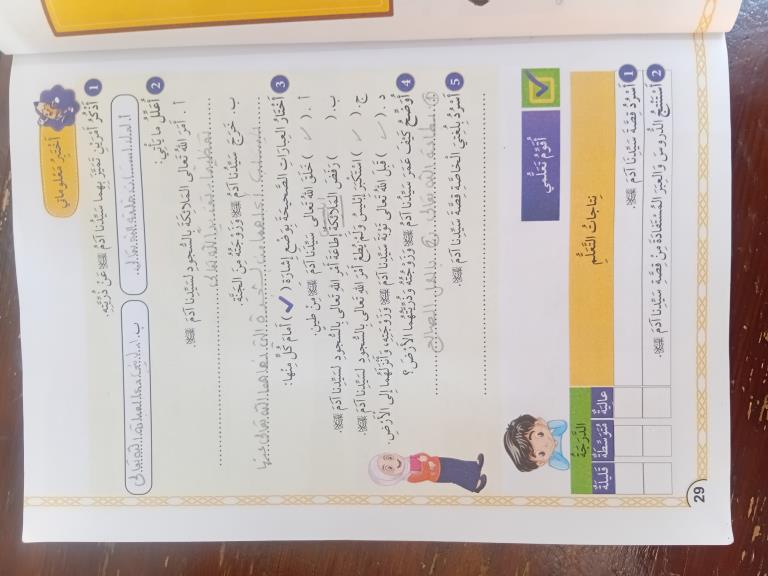 أَخْتَبِرُ مَعْلُوماتي
1 أَذْكُرُ أَمْرَيْنِ تَمَيَّزَ بِهِما سَيِّدُنا آدَمُ ﷺ عَنْ ذُرِّيَّتِهِ.
أ.
ب.
2 أُعَلِّلُ ما يَأْتي:
أ . أَمَرَ اللهُ تَعالى المَلائِكَةَ بِالسُّجودِ لِسَيِّدِنا آدَمَ ﷺ.
ب. خَرَجَ سَيِّدُنا آدَمُ ﷺ وَزَوْجَتُهُ مِنَ الجَنَّةِ.
3 أَخْتارُ العِباراتِ الصَّحيحَةَ بِوَضْعِ إِشارَةِ (✓) أَمامَ كُلٍّ مِنْها:
أ . (✓) خَلَقَ اللهُ تَعالى سَيِّدَنا آدَمَ ﷺ مِنْ طينٍ.
ب. ( ) رَفَضَ المَلائِكَةُ إِطاعَةَ أَمْرِ اللهِ تَعالى بِالسُّجودِ لِسَيِّدِنا آدَمَ ﷺ.
ج. (✓) اسْتَكْبَرَ إِبْليسُ وَلَمْ يُطِعْ أَمْرَ اللهِ تَعالى بِالسُّجودِ لِسَيِّدِنا آدَمَ ﷺ.
د . (✓) قَبِلَ اللهُ تَعالى تَوْبَةَ سَيِّدِنا آدَمَ ﷺ وَزَوْجَتِهِ، وَأَنْزَلَهُما إِلى الأَرْضِ.
4 أُوَضِّحُ كَيْفَ عَمَرَ سَيِّدُنا آدَمُ ﷺ وَزَوْجَتُهُ وَذُرِّيَّتُهُما الأَرْضَ؟
5 أَسْرُدُ بِلُغَتي الخاصَّةِ قِصَّةَ سَيِّدِنا آدَمَ ﷺ.
أُقَوِّمُ تَعَلُّمي
نتاجاتُ التَّعَلُّمِ
الدَّرَجَةُ
عالِيَةٌ مُتَوَسِّطَةٌ قَليلَةٌ
1 أَسْرُدُ قِصَّةَ سَيِّدِنا آدَمَ ﷺ.
2 أَسْتَنْتِجُ الدُّروسَ وَالعِبَرَ المُسْتَفادَةَ مِنْ قِصَّةِ سَيِّدِنا آدَمَ ﷺ.
29